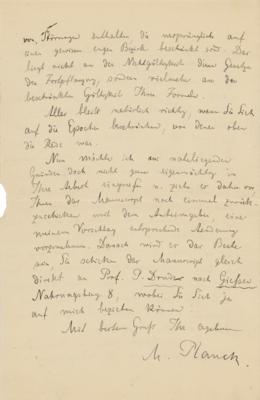 von Störungen enthalten die ursprünglich auf
einen gewissen engen Bezirk beschränkt sind. Das
liegt nicht an der Nichtgültigkeit Ihrer Gesetze
der Fortpflanzung, sondern vielmehr an der
beschränkten Gültigkeit Ihrer Formeln.
Alles bleibt natürlich richtig, wenn Sie sich
auf die Epochen beschränken, von denen oben
die Rede war.
Nun möchte ich aus naheliegenden
Gründen doch nicht zu eigenmächtig in
Ihre Arbeit eingreifen u. ziehe es daher vor,
Ihnen das Manuscript noch einmal zurück-
zuschicken mit dem Anheimgeben, eine
meinem Vorschlag entsprechende Änderung
vorzunehmen. Danach wird es das Beste
sein, Sie schicken das Manuscript gleich
direkt an Prof. P. Drude nach Giessen
8, wobei Sie Sich ja
auf mich beziehen können.
Mit bestem Gruß Ihr ergebener
M. Planck.